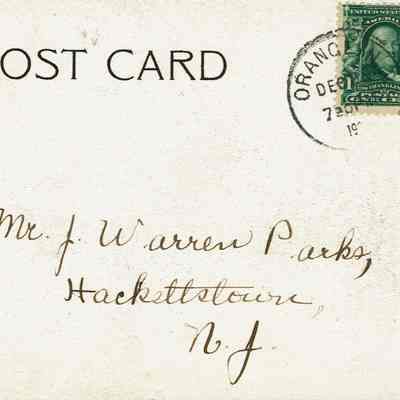 OST CARD
ORANG
DEC
7
19
UNITED STATES
AMERICA
Mr. J. Warren Parks,
Hackettstown,
N. J.